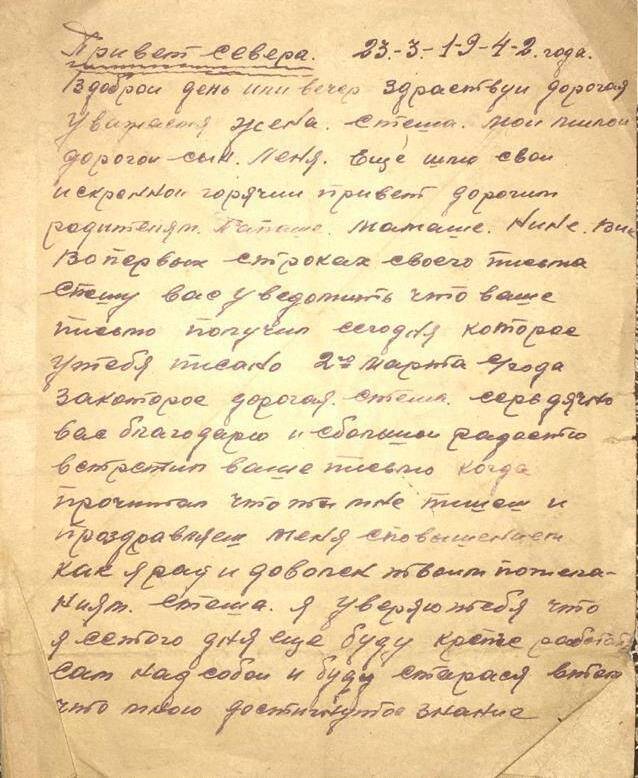 Привет севера. 23.-3.-1-9-4-2. года.
Вдоброи день или вечер здраствуи дорогая
уважаемя жена. Стеша. мои милои
дорогои сын. Леня. Ещё шлю свои
искреннои горячии привет дорогим
родителям. Папаше. Мамаше. Нине.
Вопервых строках своего письма
спешу вас уведомить что ваше
письмо получил сегодня которое
утебя писано 2го марта с/года
закоторое дорогая. Стеша. серьдячно
вас благодарю и сбольшои радастю
встретил ваше письмо когда
прочитал что ты мне пишеш и
проздравляеш меня сповышением
как я рад и доволек твоим пожела-
ниям. Стеша. я уверяю тебя что
я сетого дня еще буду крепче работать
сам над собои и буду старася втом
что мною достигнутое знание